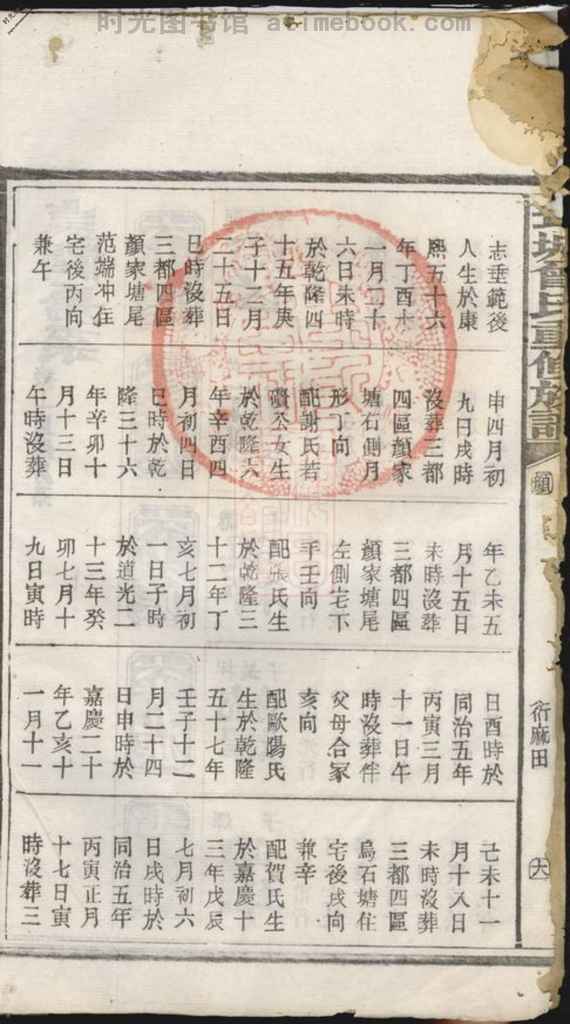 时光图书馆 acimebook.com
曾氏重修族譜
衍麻田
志垂範後
人生於康
熙五十六
年丁酉十
一月二十
六日未時
於乾隆四
十五年庚
子十二月
二十五日
巳時沒葬
三都四區
顏家塘尾
范端冲住
宅後丙向
兼午
申四月初
九日戌時
沒葬三都
四區顏家
塘石側月
形丁向
配謝氏若
公女生
於乾隆六
年辛酉四
月初四日
巳時於乾
隆三十六
年辛卯十
月十三日
午時沒葬
年乙未五
月十五日
未時沒葬
三都四區
顏家塘尾
左側宅下
手壬向
配張氏生
於乾隆三
十二年丁
亥七月初
一日子時
於道光二
十三年癸
卯七月十
九日寅時
日酉時於
同治五年
丙寅三月
十一日午
時沒葬伴
父母合冢
亥向
配歐陽氏
生於乾隆
五十七年
壬子十二
月二十四
日申時於
嘉慶二十
年乙亥十
一月十一
己未十一
月十八日
未時沒葬
三都四區
烏石塘住
宅後戌向
兼辛
配賀氏生
於嘉慶十
三年戊辰
七月初六
日戌時於
同治五年
丙寅正月
十七日寅
時沒葬三